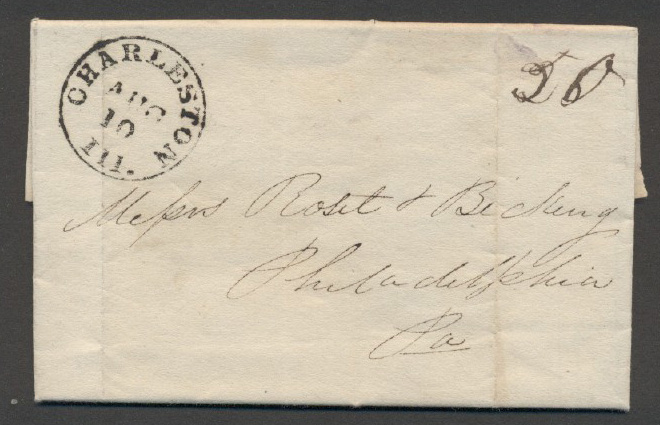 CHARLESTON
AUG
10
Ill.
50
Messrs Roset & Bicking
Philadelphia
Pa